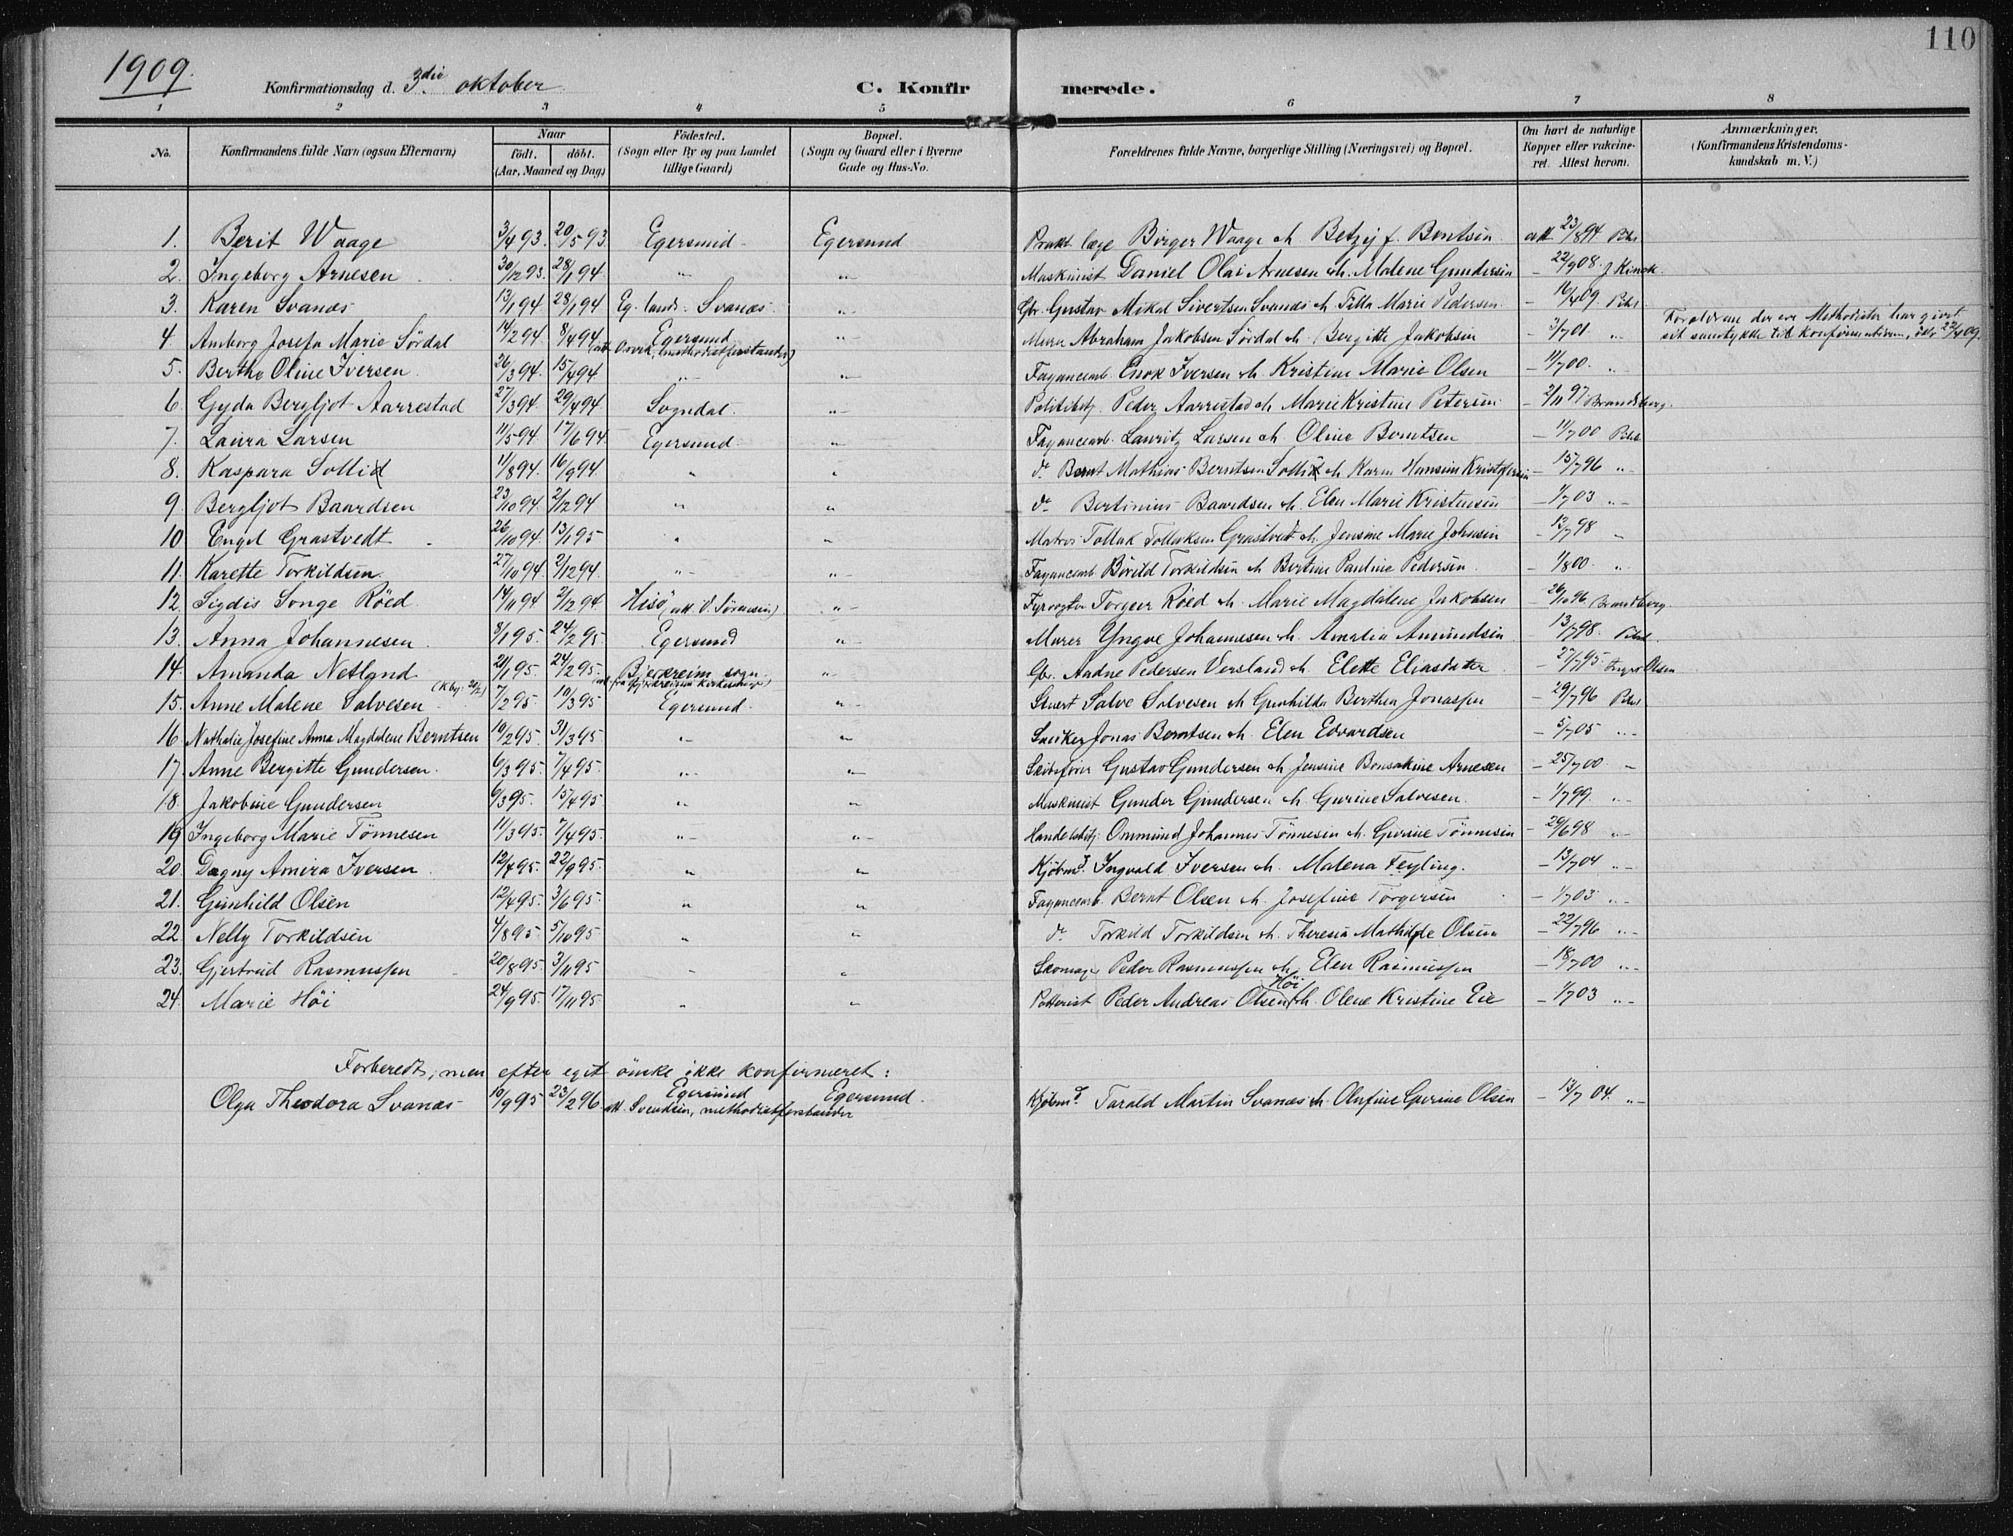 110
1909.
Konfirmationsdag d. 3die oktober
C. Konfirmerede.
1 2 3 4 5 6 7 8
No. Konfirmandens fulde Navn (ogsaa Efternavn) Naar födt. döbt. (Aar, Maaned og Dag) Födested. (Sogn eller By og paa Landet tillige Gaard) Bopæl. (Sogn og Gaard eller i Byerne Gade og Hus-No. Forældrenes fulde Navne, borgerlige Stilling (Næringsvei) og Bopæl. Om havt de naturlige Kopper eller vakcineret. Attest herom. Anmærkninger. (Konfirmandens Kristendomskundskab m. V.)
1. Berit Waage 3/4 93. 20/5 93. Egersund Egersund Prakt. læge Birger Waage & Betzy f. Berntsen att 23/8 94
2. Ingeborg Arnesen 30/12 93. 28/1 94 " " Maskinist Daniel Olai Arnesen & Malene Gundersen - 22/9 08.
3. Karen Svanæs 13/1 94 28/1 94 Eg. land. Svanæs " Gbr. Gustav Mikal Sivertsen Svanæs & Tilla Marie Pedersen - 16/4 09.
4. Amborg Josefa Marie Sørdal 14/2 94 8/4 94 Egersund " Murer Abraham Jakobsen Sørdal & Bergitte Jakobsen - 3/7 01 " Forældrene der ere Methodister har givet sit samtykke til Konfirmationen, 22/4 09.
5. Berthe Oline Iversen 26/3 94. 15/4 94 " " Fayancearb. Enok Iversen & Kristine Marie Olsen - 11/7 00. "
6. Gyda Bergljot Aarrestad 27/3 94. 29/4 94 Sogndal. " Politibetj. Peder Aarrestad & Marie Kristine Petersen - 2/11 97 Brandsberg.
7. Laura Larsen 11/5 94 17/6 94 Egersund " Fayancearb. Lauritz Larsen & Oline Berntsen - 11/7 00
8. Kaspara Sollid 11/8 94. 16/9 94 " " do Bernt Mathias Berntsen Solli & Karen Hansine Kristofersen - 15/7 96 "
9. Bergljot Baardsen 23/10 94 2/12 94 " " do Bertinius Baardsen & Elen Marie Kristensen - 1/7 03 "
10. Engel Grastvedt 26/10 94 13/1 95 " " Matros Tollak Tollaksen Grastvedt & Jensine Marie Johnsen - 13/7 98 "
11. Karette Torkildsen 27/10 94. 2/12 94. " " Fayancearb. Børild Torkildsen & Bertine Pauline Pedersen - 1/8 00. "
12. Sigdis Songe Røed 14/11 94 2/12 94. Hisö " Fyrvogter Torgeir Røed & Marie Magdalene Jakobsen - 26/10 96 Brandsberg.
13. Anna Johannesen 8/1 95. 24/2 95 Egersund " Murer Yngve Johannesen & Amalia Amundsen - 13/7 98.
14. Amanda Netland 21/1 95. 24/2 95. Bjerkreim sogn " Gbr. Aadne Pedersen Versland & Elette Eliasdater - 27/7 95 Olsen
15. Anne Malene Salvesen 7/2 95. 10/3 95 Egersund " Stuert Salve Salvesen & Gunhilda Berthea Jonassen - 29/7 96
16 Nathalie Josefine Anna Magdalene Berntsen 10/2 95. 31/3 95 " " Snekker Jonas Berntsen & Elen Edvardsen - 5/7 05 "
17. Anne Bergitte Gundersen. 6/3 95. 7/4 95. " " Skibsfører Gustav Gundersen & Jensine Bonsakine Arnesen - 25/7 00 "
18. Jakobine Gundersen 6/3 95. 15/4 95. " " Maskinist Gunder Gundersen & Gurine Salvesen. - 1/7 99. "
19. Ingeborg Marie Tönnesen 11/3 95. 7/4 95. " " Handelsbetj. Ommund Johannes Tönnesen & Gurine Tönnesen - 20/6 98 "
20. Dagny Amira Iversen 12/4 95. 22/9 95 " " Kjøbmd. Ingvald Iversen & Malena Feyling. - 13/7 04 "
21. Gunhild Olsen 12/4 95. 3/6 95. " " Fayancearb. Bernt Olsen & Josefine Torgersen - 1/7 03 "
22. Nelly Torkildsen 4/8 95. 5/10 95 " " do Torkild Torkildsen & Theresia Mathilde Olsen - 22/7 96 "
23. Gjertrud Rasmussen 20/8 95. 3/11 95 " " Skomager Peder Rasmussen & Elen Rasmussen - 18/7 00 "
24. Marie Höi 24/9 95. 17/11 95 " " Potterist Peder Andreas Olsen Höi & Olene Kristine Eie - 1/7 03 "
Forberedt, men efter eget önske ikke konfirmeret:
Olga Theodora Svanæs 10/9 95 23/2 96 Egersund att. Svendsen, methodistforstander Egersund. Kjøbmd. Tarald Martin Svanæs & Olufine Gurine Olsen - 13/7 04. "